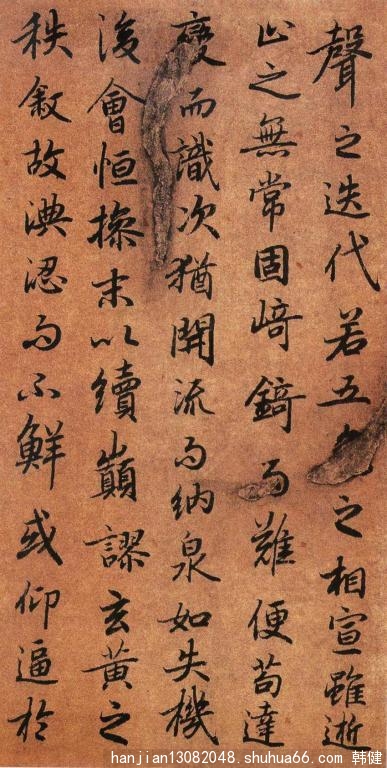 聲之迭代若五之相宣雖逝
止之無常固崎錡而難便苟達
變而識次猶開流而納泉如失機
後會恒操末以續巔謬玄黃之
秩敘故淟涊而不鮮或仰逼於
hanjian13082048.shuhua66.com 韩健